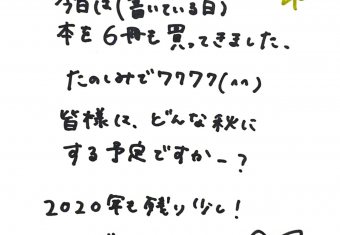 今日は(書いている日)
本を6冊も買ってきました。
たのしみでワクワク(^^)
皆様は、どんな秋に
する予定ですかー?
2020年も残り少し!